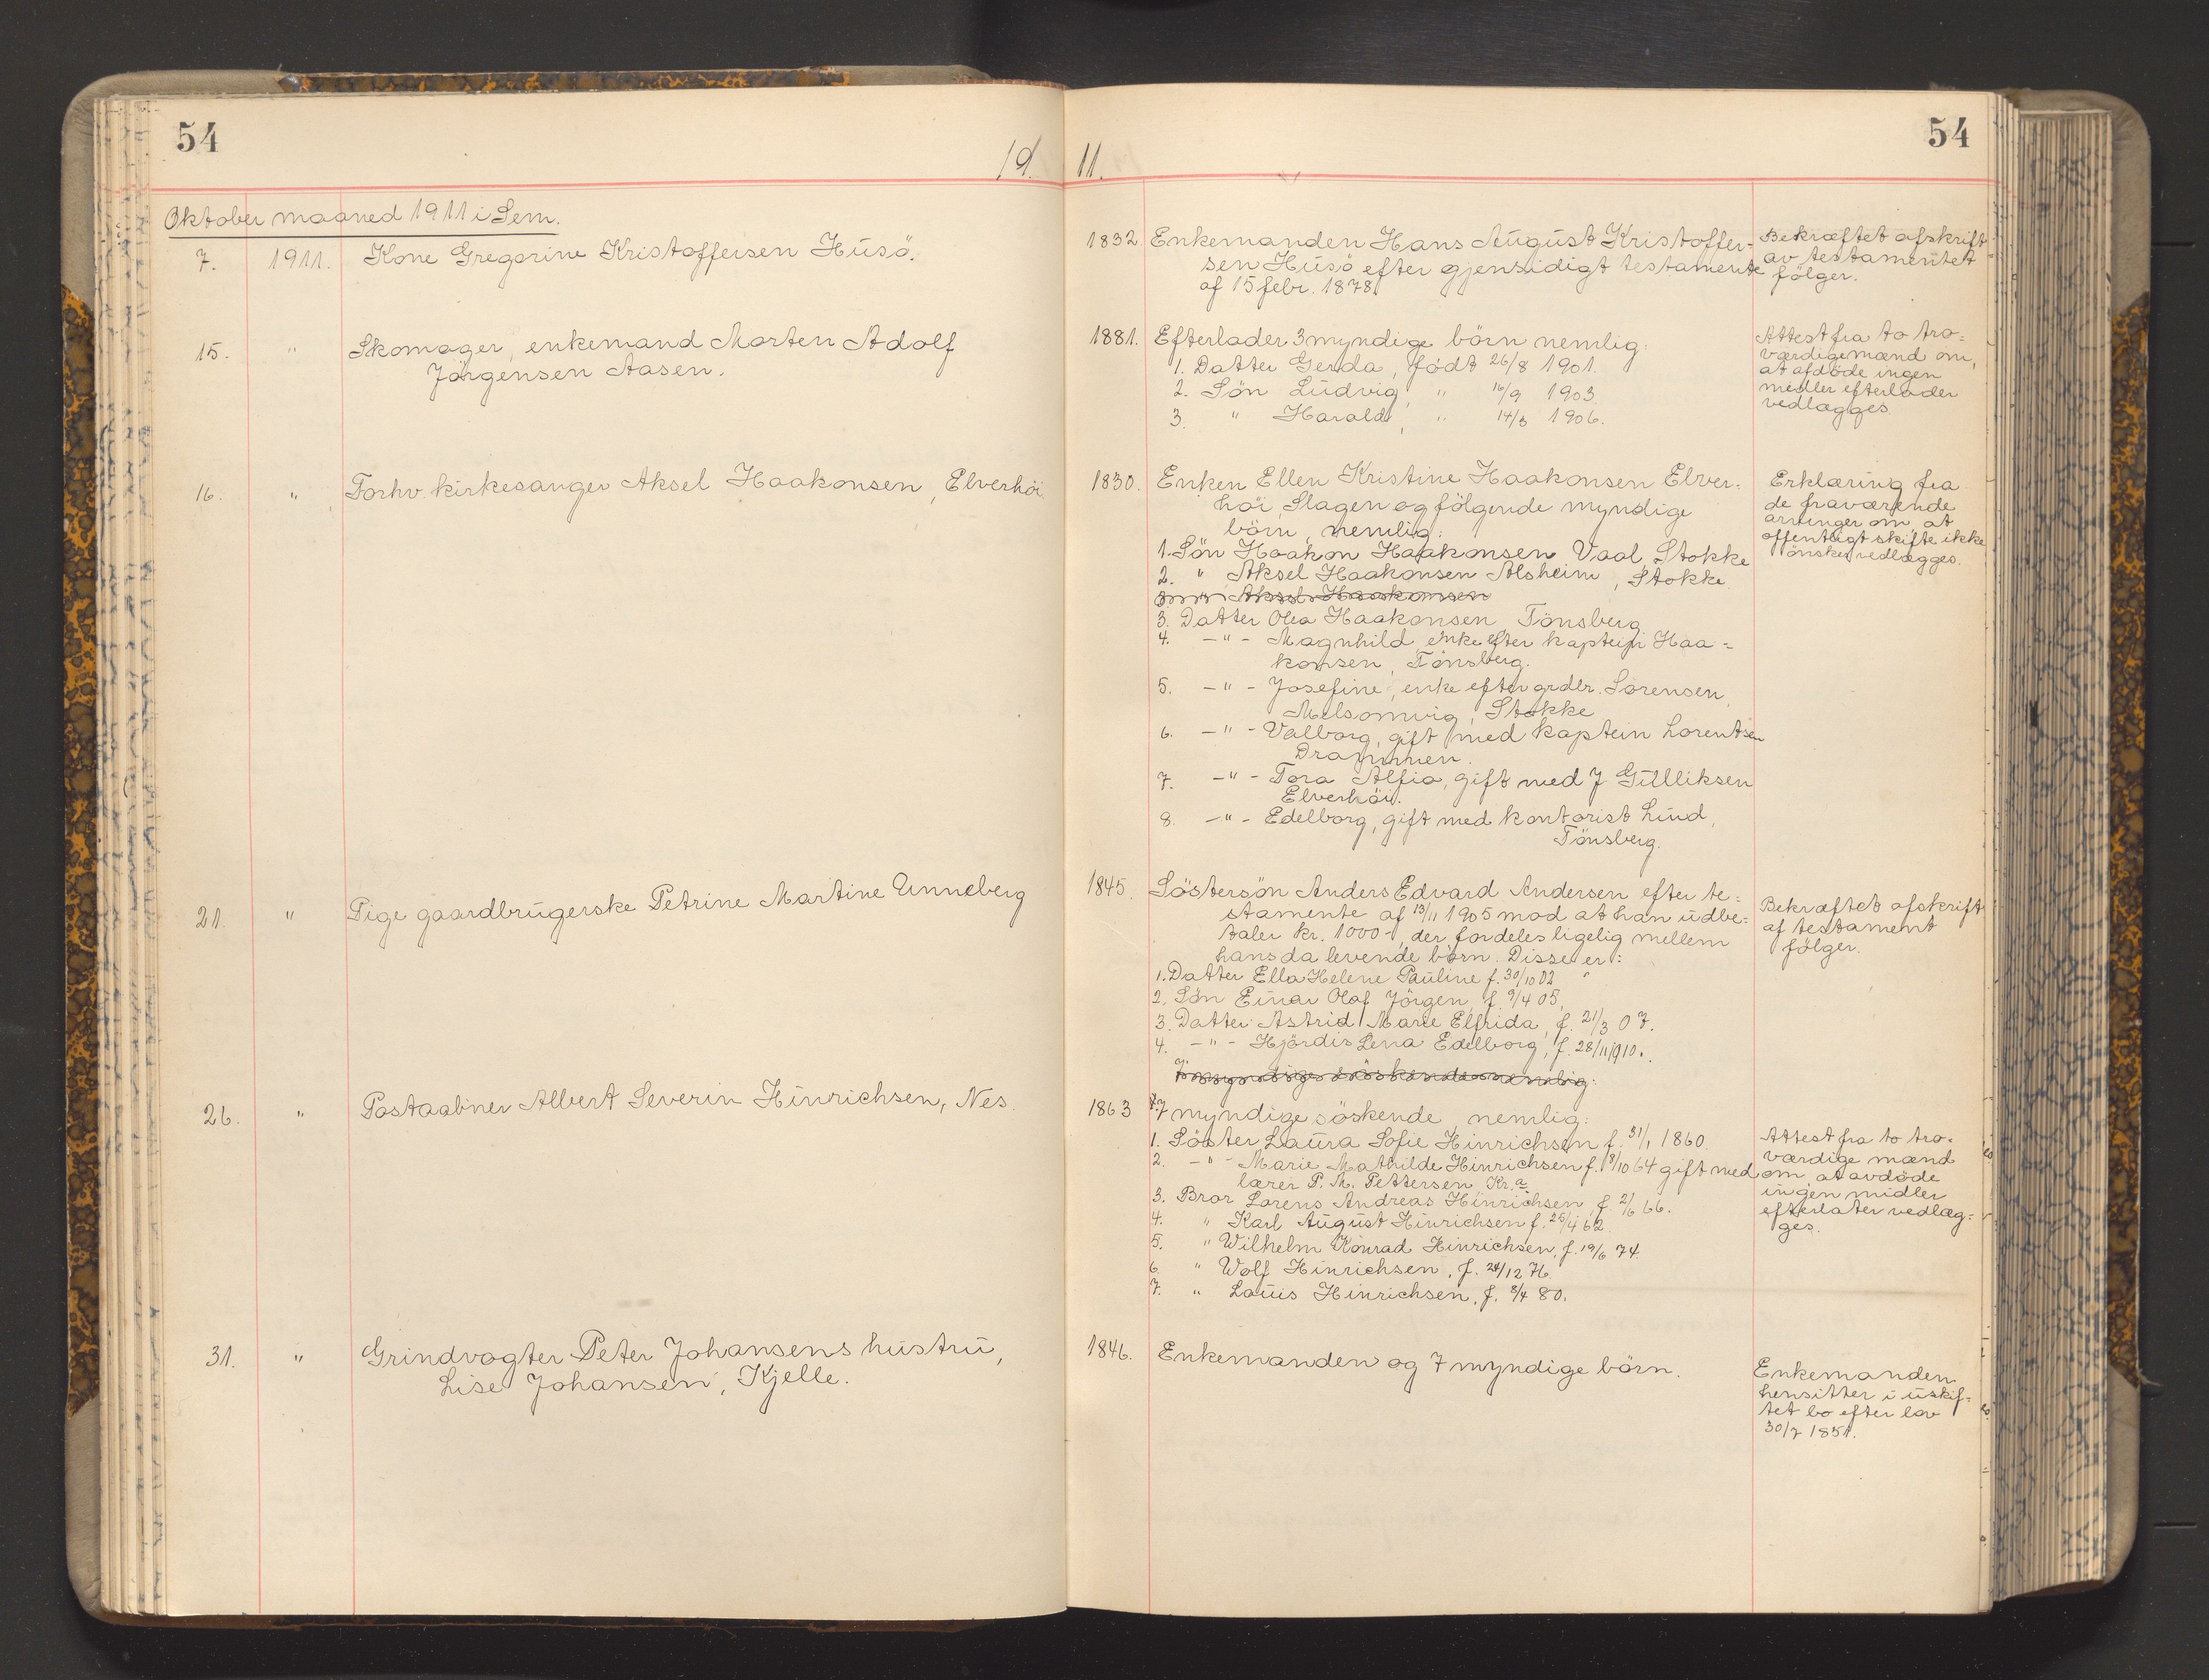 54
19
11.
54
Oktober maaned 1911 i Sem.
7. 1911. Kone Gregorine Kristoffersen Husö.
1832. Enkemanden Hans August Kristoffer-
sen Husö efter gjensidigt testamente
af 15 febr. 1878.
Bekræftet afskrift
av testamentet
fölger.
15. " Skomager, enkemand Morten Adolf
Jörgensen Aasen.
1881. Efterlader 3 myndige börn nemlig:
1. Datter Gerda, födt 26/8 1901.
2. Sön Ludvig, " 16/9 1903.
3. " Harald, " 14/3 1906.
Attest fra to tro-
værdige mænd om,
at afdöde ingen
midler efterlader
vedlægges
16. " Forhv. kirkesanger Aksel Haakonsen, Elverhöi
1830. Enken Ellen Kristine Haakonsen Elver-
höi, Slagen og fölgende myndige
börn, nemlig:
1. Sön Haakon Haakonsen Vaal, Stokke
2. " Aksel Haakonsen Alsheim, Stokke
3. " Aksel Haakonsen
3. Datter Olea Haakonsen, Tönsberg
4. -"- Magnhild, enke efter kaptein Haa-
konsen, Tönsberg.
5. -"- Josefine, enke efter grdbr. Sörensen,
Melsomvig, Stokke
6. -"- Valborg, gift med kaptein Lorentsen
Drammen.
7. -"- Tora Alfia, gift med J. Gulliksen
Elverhöi.
8. -"- Edelborg, gift med kontorist Lund,
Tönsberg.
Erklæring fra
de fraværende
arvinger om, at
offentligt skifte ikke
önskes vedlægges.
21. " Pige gaardbrugerske Petrine Martine Unneberg
1845. Söstersön Anders Edvard Andersen efter te-
stamente af 13/11 1905 mod at han udbe-
taler kr. 1000 -, der fordeles ligelig mellem
hans da levende börn. Disse er:
1. Datter Ella Helene Pauline f. 30/10 02
2. Sön Einar Olaf Jörgen, f. 9/4 05,
3. Datter Astrid Marie Elfrida, f. 21/3 07.
4. -"- Hjördis Lena Edelborg, f. 28/11 1910.
7 myndige söskende nemlig:
Bekræftet afskrift
af testament
fölger.
26. " Postaabner Albert Severin Hinrichsen, Nes.
1863 7 myndige söskende, nemlig:
1. Söster Laura Sofie Hinrichsen f. 31/1 1860.
2. -"- Marie Mathilde Hinrichsen f. 18/10 64 gift med
lærer P. M. Pettersen Kr.a
3. Bror Lorens Andreas Hinrichsen, f. 2/6 66.
4. " Karl August Hinrichsen f. 25/4 62.
5. " Wilhelm Konrad Hinrichsen, f. 19/6 74.
6. " Wolf Hinrichsen, f. 24/12 76.
7. " Louis Hinrichsen, f. 8/4 80.
Attest fra to tro-
værdige mænd
om, at avdöde
ingen midler
efterlater vedlæg-
ges.
31. " Grindvogter Peter Johansens hustru,
Lise Johansen, Kjelle.
1846. Enkemanden og 7 myndige börn.
Enkemanden
hensitter i uskif-
tet bo efter lov
30/7 1851.